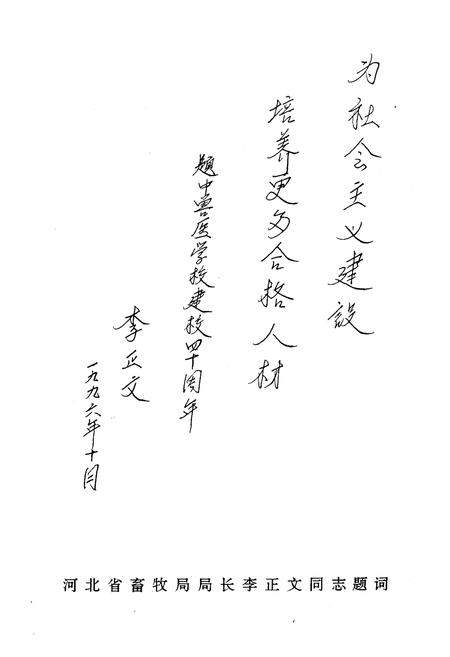 为社会主义建设
培养更多合格人材
题中兽医学校建校四十周年
李正文
一九九六年十月
河北省畜牧局局长李正文同志题词